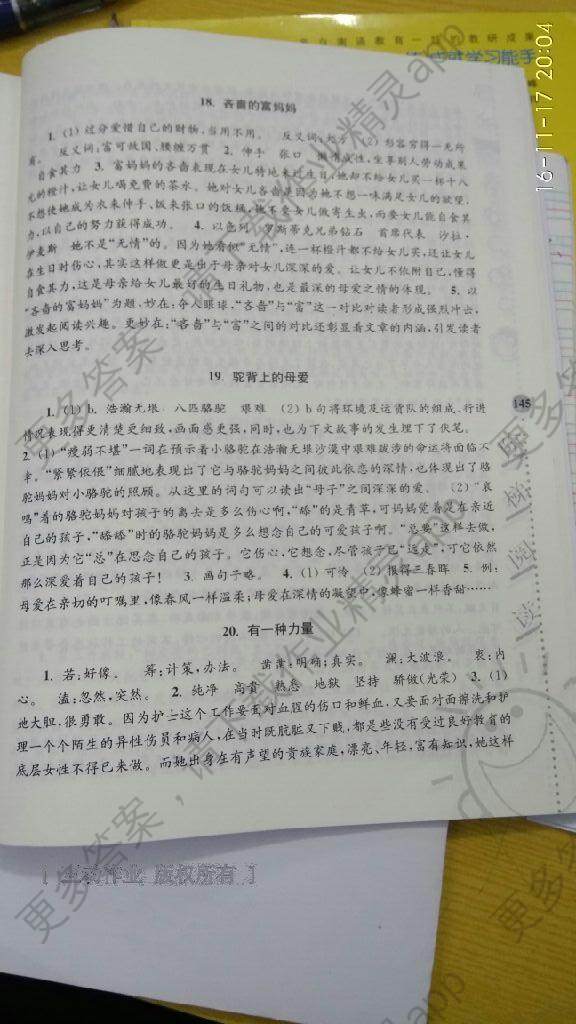 16-11-17 20:04
学习能手
18. 吝啬的富妈妈
1. (1) 过分爱惜自己的财物,当用不用。 反义词:大方 (2) 形容穷得一无所
有。 反义词:富可敌国,腰缠万贯 2. 伸手 张口 懒惰成性,坐享别人劳动成果
自食其力 3. 富妈妈的吝啬表现在女儿特地来过生日,她却不给女儿买一杯十八
元的橙汁,让女儿喝免费的茶水。她对女儿吝啬是因为她不想一味满足女儿的欲望,
不想使她成为衣来伸手、饭来张口的饭桶,她不要女儿做寄生虫,而要女儿能自食其
力,以自己的努力获得成功。 4. 以色列 罗斯蒂克兄弟钻石 首席代表 沙拉·
伊麦斯 她不是“无情”的。因为她看似“无情”,连一杯橙汁都不给女儿买,还让女儿
在生日时伤心,其实这样做更是出于母亲对女儿深深的爱。让女儿不依附自己,懂得
自食其力,这是母亲给女儿最好的生日礼物,也是最深的母爱之情的体现。 5. 以
“吝啬的富妈妈”为题,妙在:令人眼球,“吝啬”与“富”这一对比对读者形成强烈冲击,
激发起阅读兴趣。更妙在:“吝啬”与“富”之间的对比还彰显着文章的内涵,引发读者
去深入思考。
19. 驼背上的母爱
1. (1) b. 浩瀚无垠 八匹骆驼 艰难 (2) b句将环境及运货队的组成、行进
情况表现得更清楚更细致,画面感更强,同时,也为下文故事的发生埋下了伏笔。
2. (1) “瘦弱不堪”一词在预示着小骆驼在浩瀚无垠沙漠中艰难跋涉的命运将面临不
幸。“紧紧依偎”细腻地表现出了它与骆驼妈妈之间彼此依恋的深情,也体现出了骆
驼妈妈对小骆驼的照顾。从这里的词句可以读出“母子”之间深深的爱。 (2) “哀
鸣”着的骆驼妈妈对孩子的离去是多么伤心啊,“舔”的是青草,可妈妈觉着是在亲近
自己的孩子,“舔舔”时的骆驼妈妈是多么想念自己的可爱孩子啊。“总要”这样去做,
正是因为它“总”在思念自己的孩子。它伤心,它想念,尽管孩子已“远走”,可它依然
那么深爱着自己的孩子! 3. 画句子略。 4. (1) 可怜 (2) 报得三春晖 5. 例:
母爱在亲切的叮嘱里,像春风一样温柔;母爱在深情的凝望中,像蜂蜜一样香甜……
145
20. 有一种力量
1. 若:好像。 筹:计策,办法。 凿凿:明确;真实。 澜:大波浪。 衷:内
心。 溘:忽然,突然。 2. 纯净 高贵 熟悉 地狱 坚持 骄傲(光荣) 3. (1)
她大胆、很勇敢。因为护士这个工作要面对血腥的伤口和鲜血,又要面对面擦洗和护
理一个个陌生的异性伤员和病人,在当时既肮脏又下贱,都是些没有受过良好教育的
底层女性不得已来做。而她出身在有声望的贵族家庭,漂亮、年轻,富有知识,她这样
更多答案,请下载作业精灵app